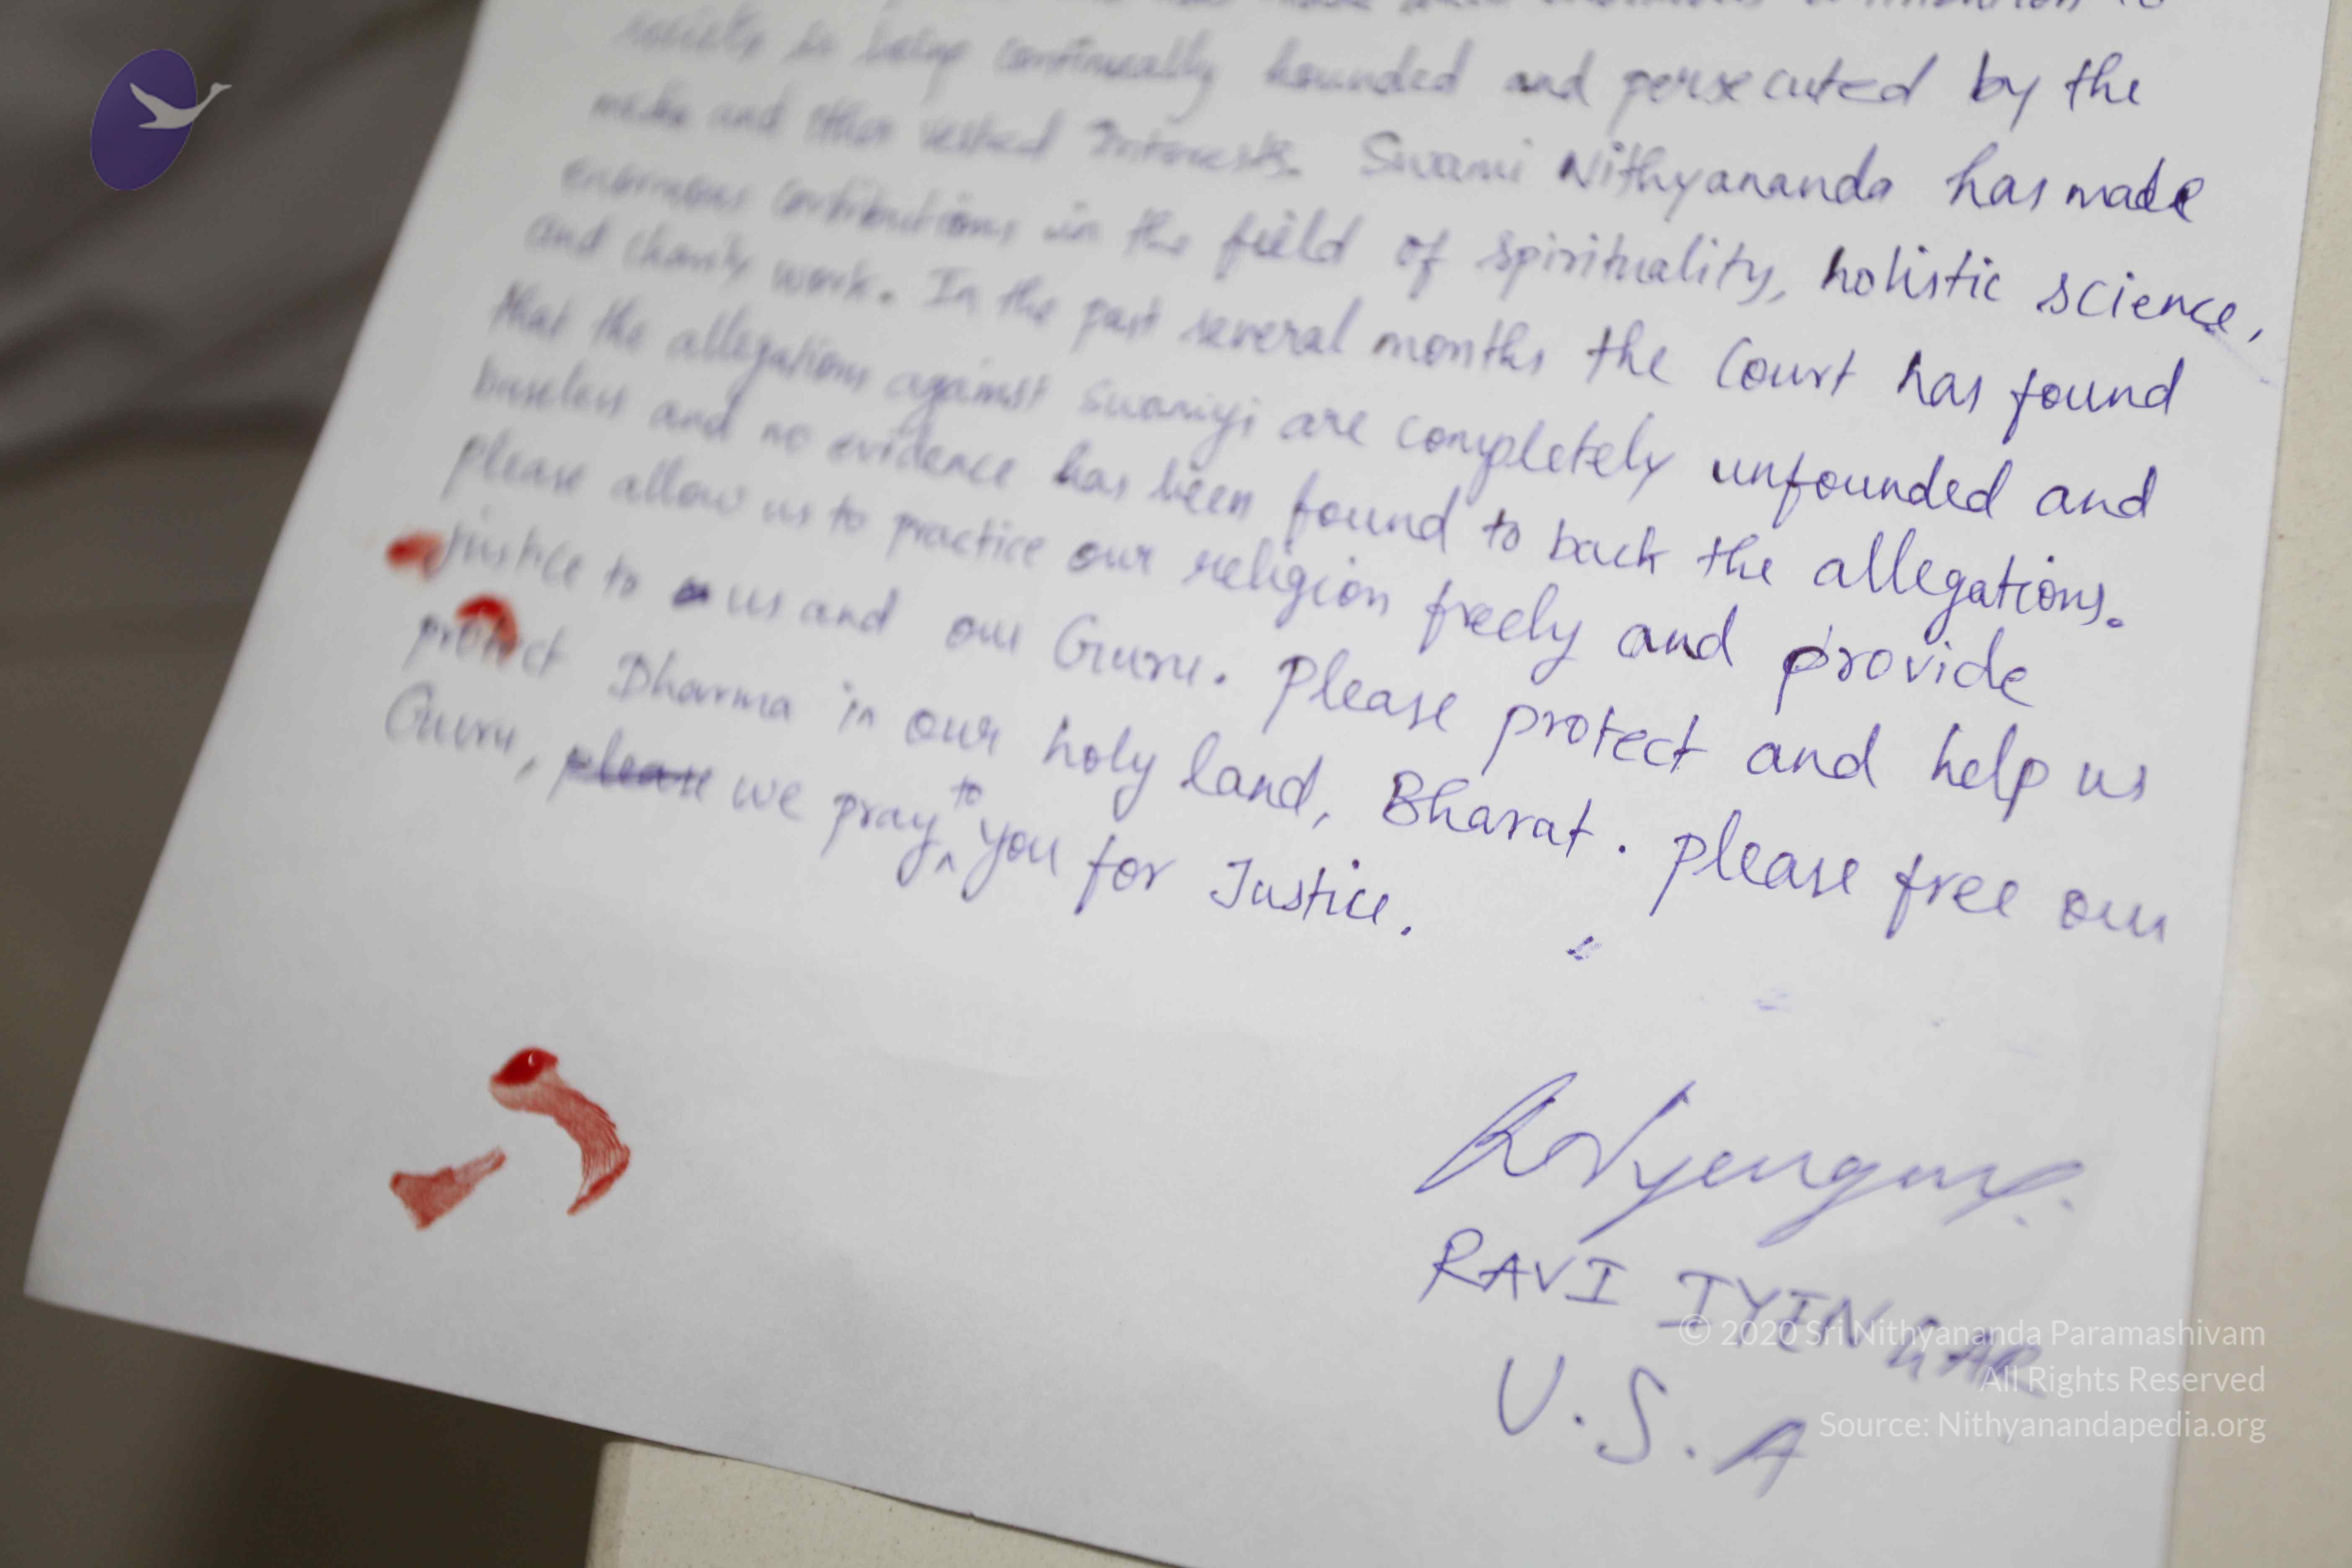 society is being continually hounded and persecuted by the
media and other vested Interests. Swami Nithyananda has made
enormous contributions in the field of spirituality, holistic science,
and charity work. In the past several months the Court has found
that the allegations against Swamiji are completely unfounded and
baseless and no evidence has been found to back the allegations.
please allow us to practice our religion freely and provide
justice to us and our Guru. Please protect and help us
protect Dharma in our holy land, Bharat. please free our
Guru, please we pray to you for Justice.
RAVI IYENGAR
U.S.A
© 2020 Sri Nithyananda Paramashivam
All Rights Reserved
Source: Nithyanandapedia.org